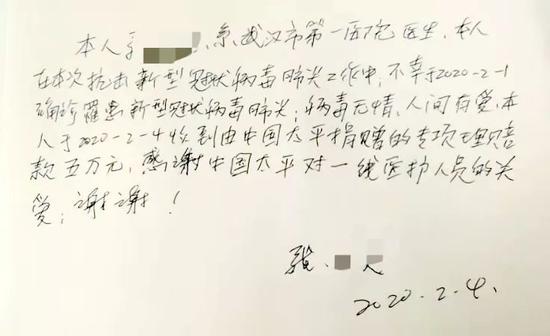 本人[]、系武汉市第一医院医生,本人
在本次抗击新型冠状病毒肺炎工作中,不幸于2020-2-1
确诊罹患新型冠状病毒肺炎;病毒无情,人间有爱,本
人于2020-2-4收到由中国太平捐赠的专项理赔
款五万元,感谢中国太平对一线医护人员的关
爱;谢谢!
2020.2.4.